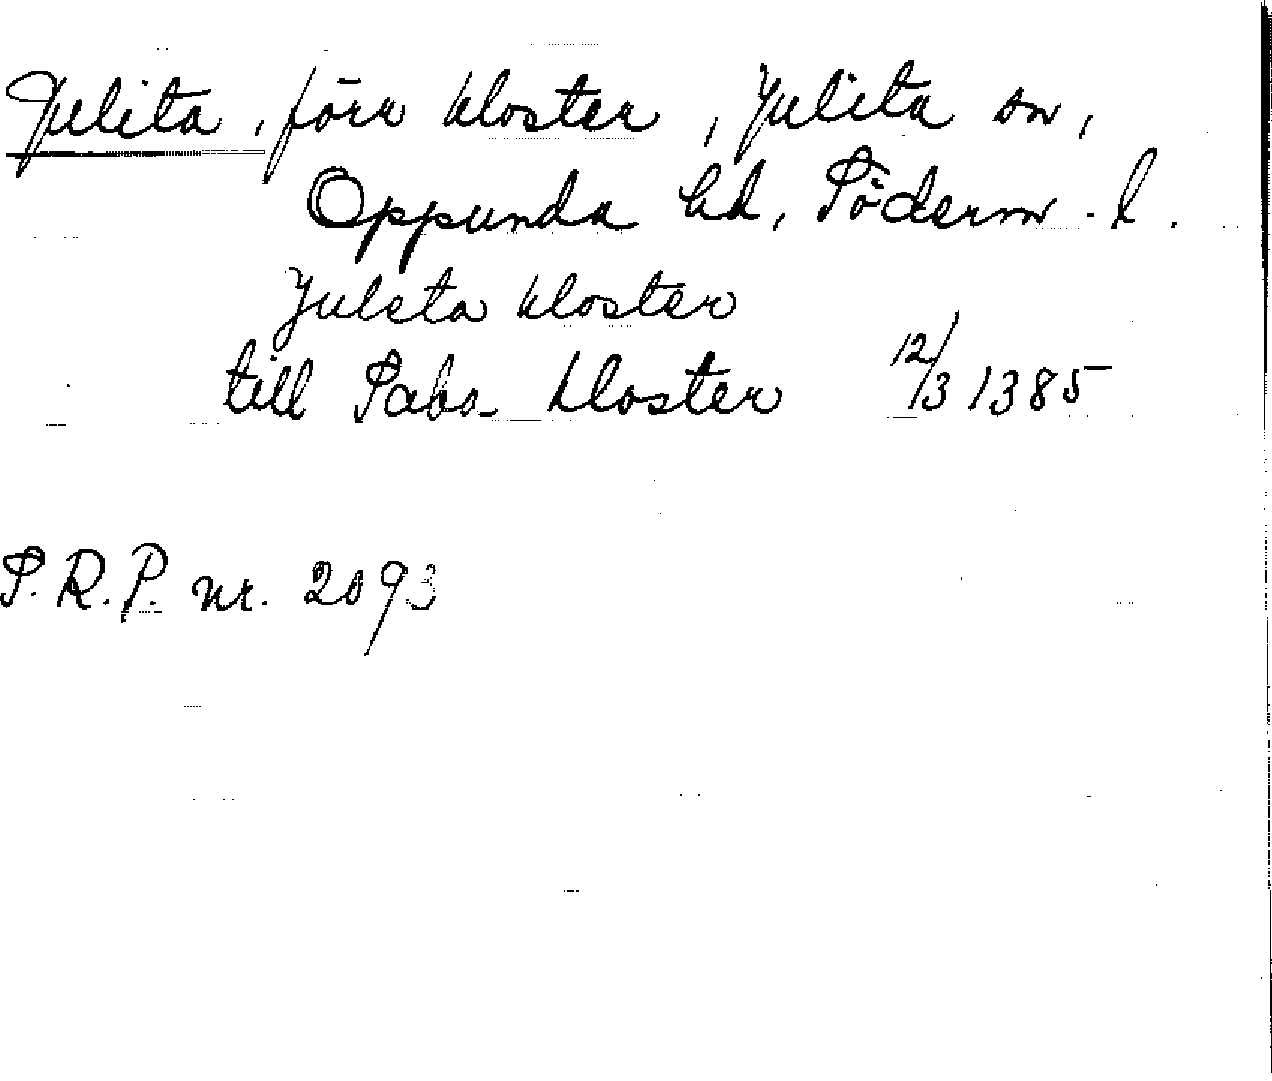 Julita, förr kloster, Julita sn,
Oppunda hd, Söderm. l.
Juleta kloster
till Saba kloster 12/3 1385
S.R.P. nr. 2093